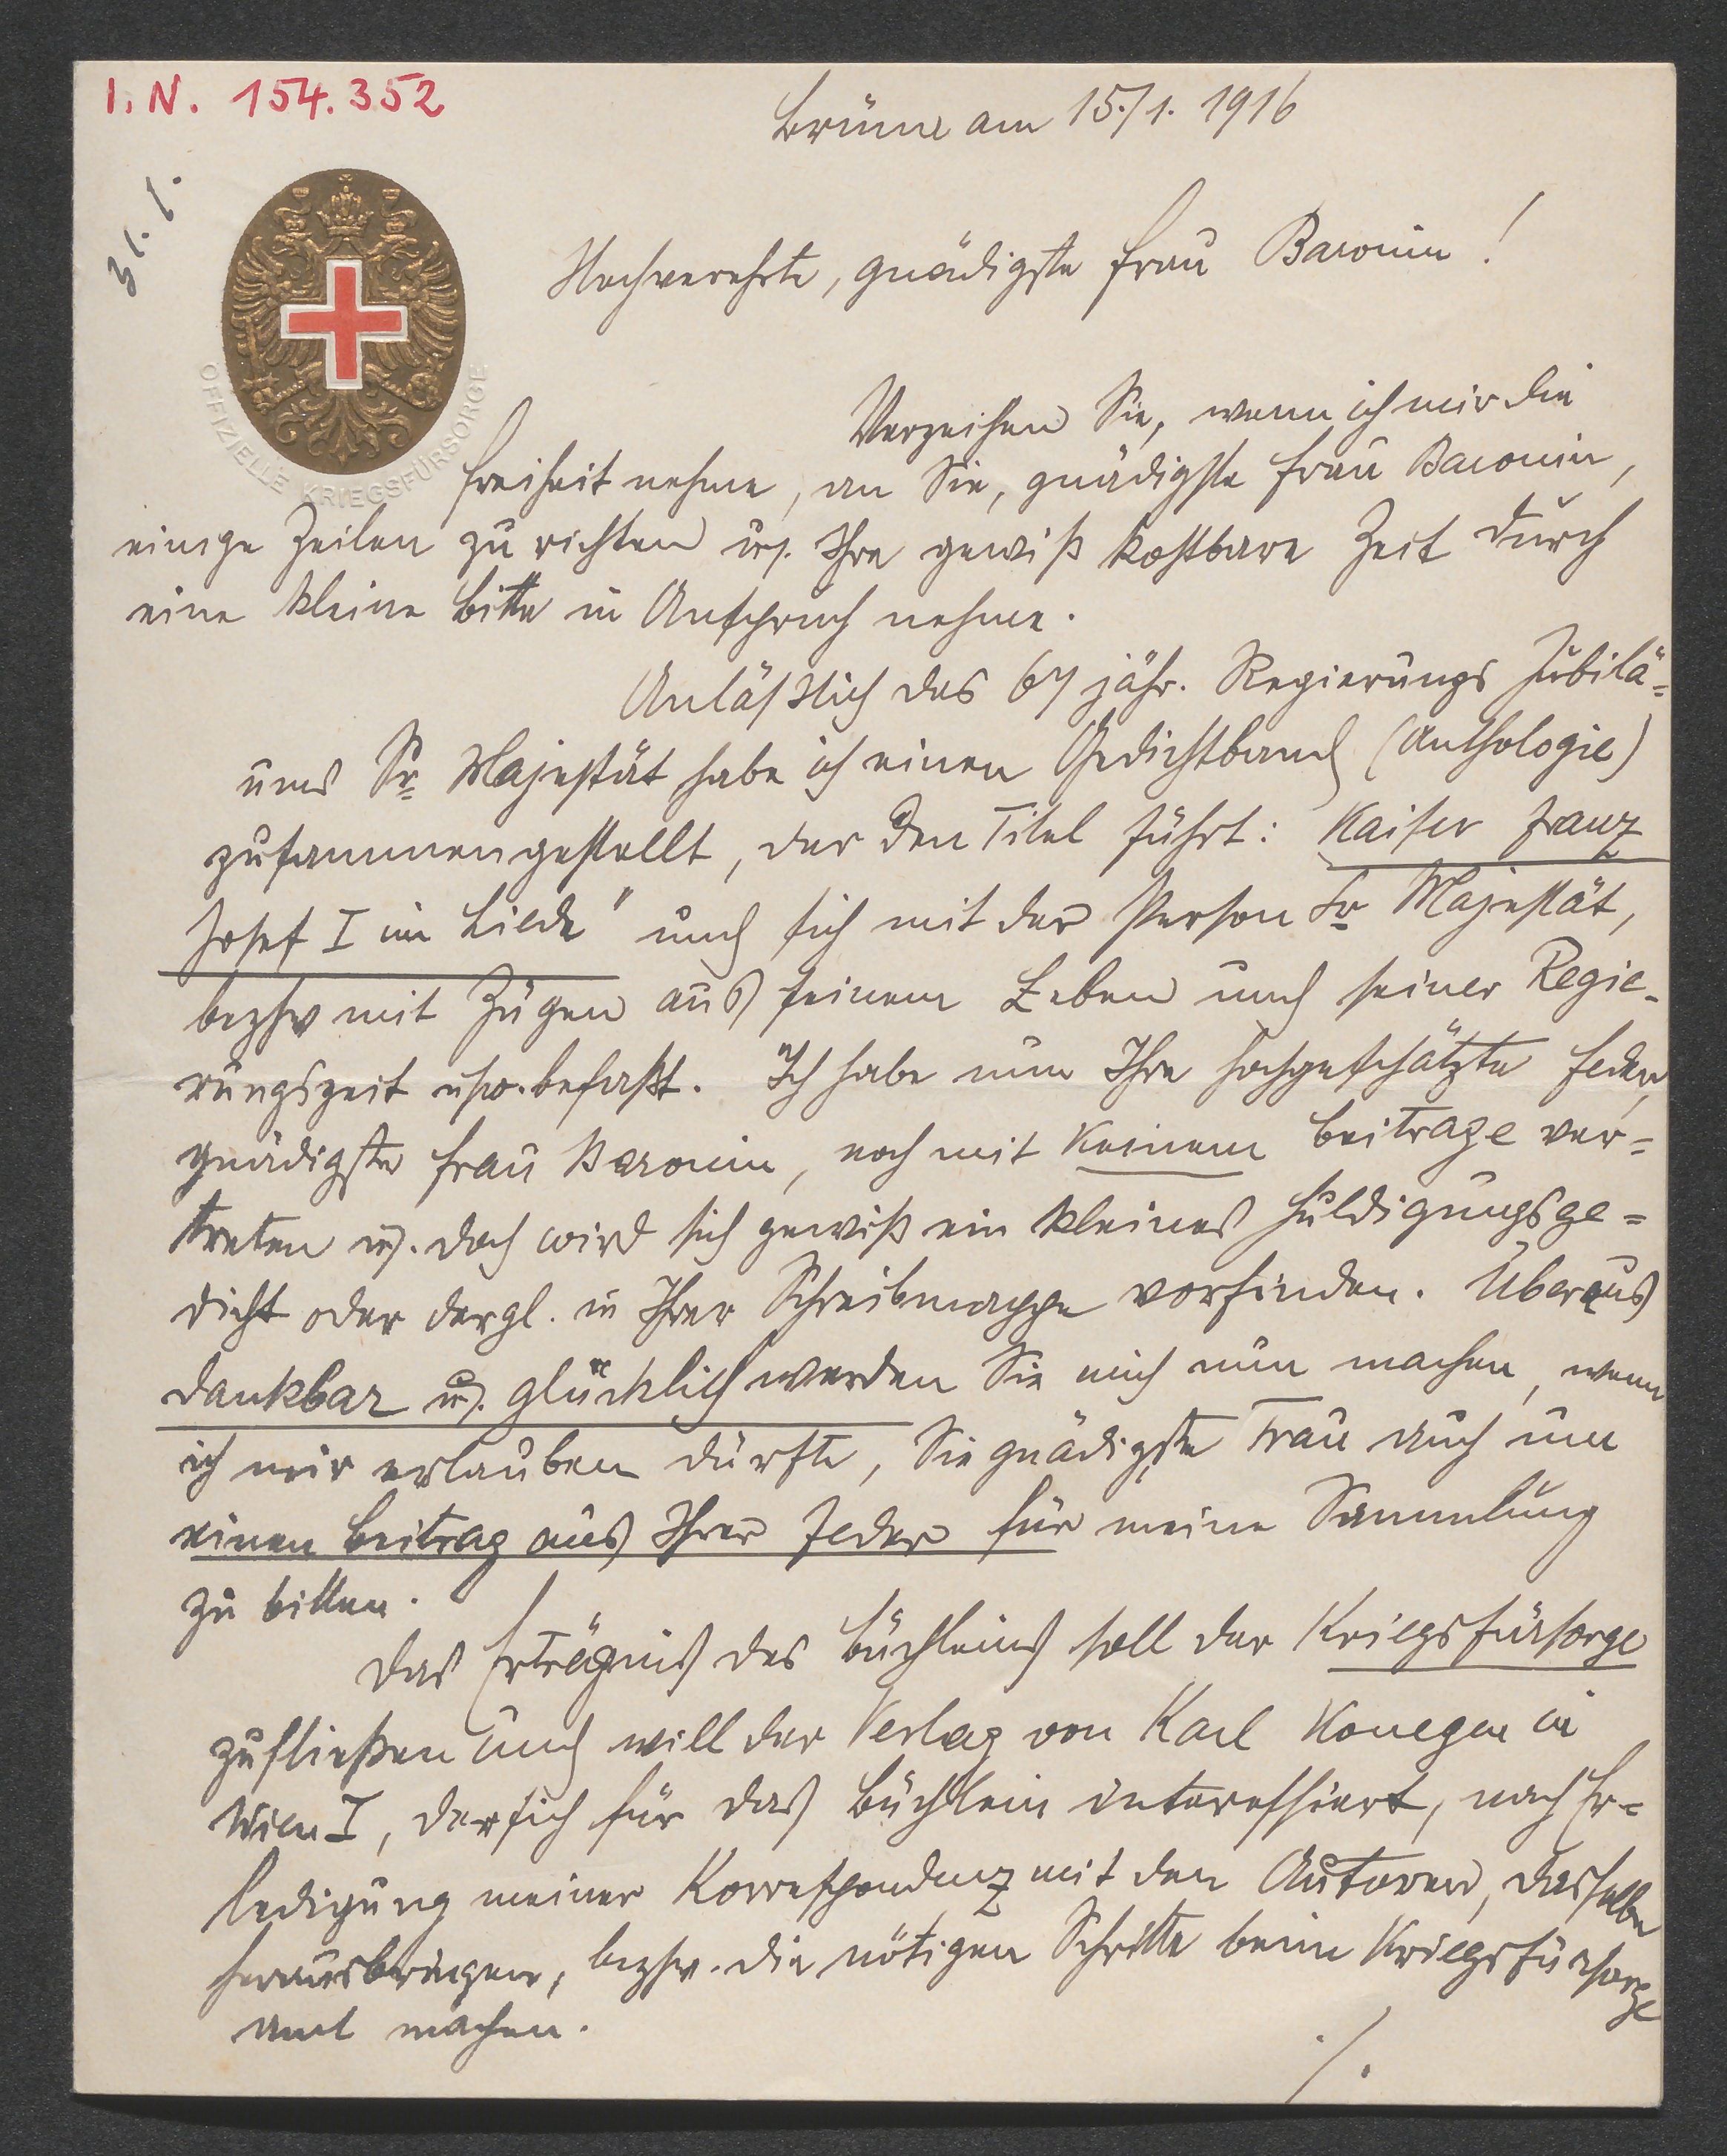 I. N. 154.352
Brünn am 15./1. 1916
31. 1.
OFFIZIELLE KRIEGSFÜRSORGE
Hochverehrte, gnädigste Frau Baronin!
Verzeihen Sie, wenn ich mir die
Freiheit nehme, an Sie, gnädigste Frau Baronin,
einige Zeilen zu richten u. Ihre gewiß kostbare Zeit durch
eine kleine Bitte in Anspruch nehme.
Anläßlich des 67 jähr. Regierungs Jubilä=
ums Sr. Majestät habe ich einen Gedichtband (Anthologie)
zusammengestellt, der den Titel führt: Kaiser Franz
Josef I im Liede" und sich mit der Person Sr Majestät,
bezhw mit Zügen aus seinem Leben und seiner Regie-
rungszeit usw. befaßt. Ich habe nun Ihre hochgeschätzte Feder,
gnädigste Frau Baronin, noch mit keinem Beitrage ver=
treten u. doch wird sich gewiß ein kleines Huldigungsge=
dicht oder dergl. in Ihrer Schreibmappe vorfinden. Überaus
dankbar u. glücklich werden Sie mich nun machen, wenn
ich mir erlauben dürfte, Sie gnädigste Frau auch um
einen Beitrag aus Ihrer Feder für meine Sammlung
zu bitten.
Das Erträgnis des Büchleins soll der Kriegsfürsorge
zufließen und will der Verlag von Karl Konegen in
Wien I, der sich für das Büchlein interessiert, nach Er=
ledigung meiner Korrespondenz mit den Autoren, dasselbe
herausbringen, bezhw. die nötigen Schritte beim Kriegsfürsorge
amt machen.
./.